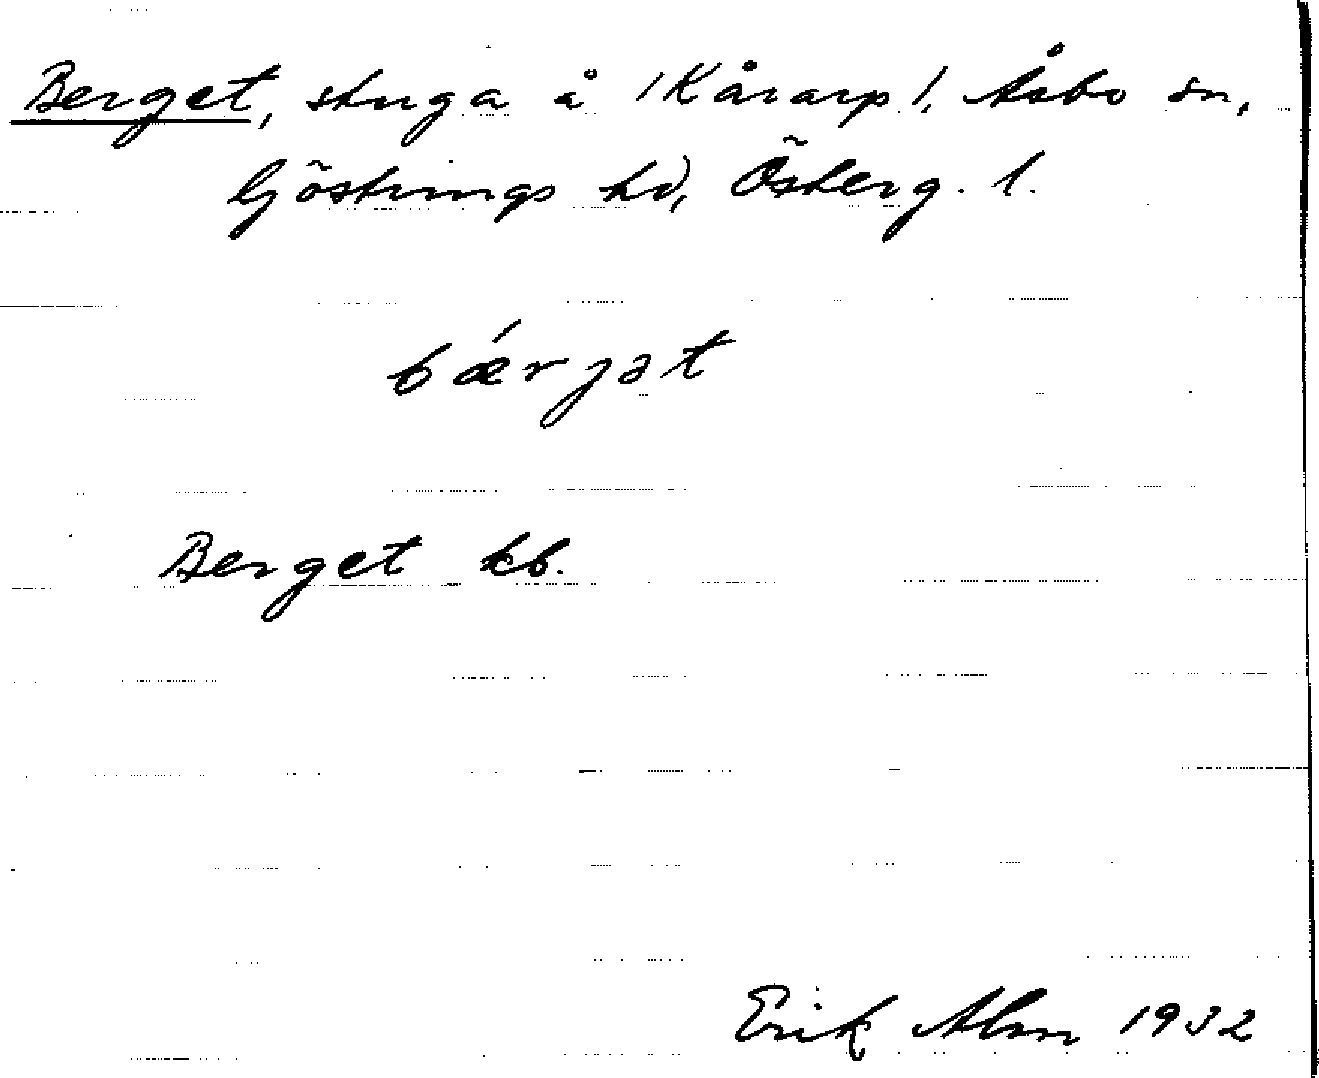 Berget, stuga å /Kårarp/, Åsbo sn,
Göstrings hd, Österg. l.
bǽrjət
Berget kb.
Erik Alm 1932